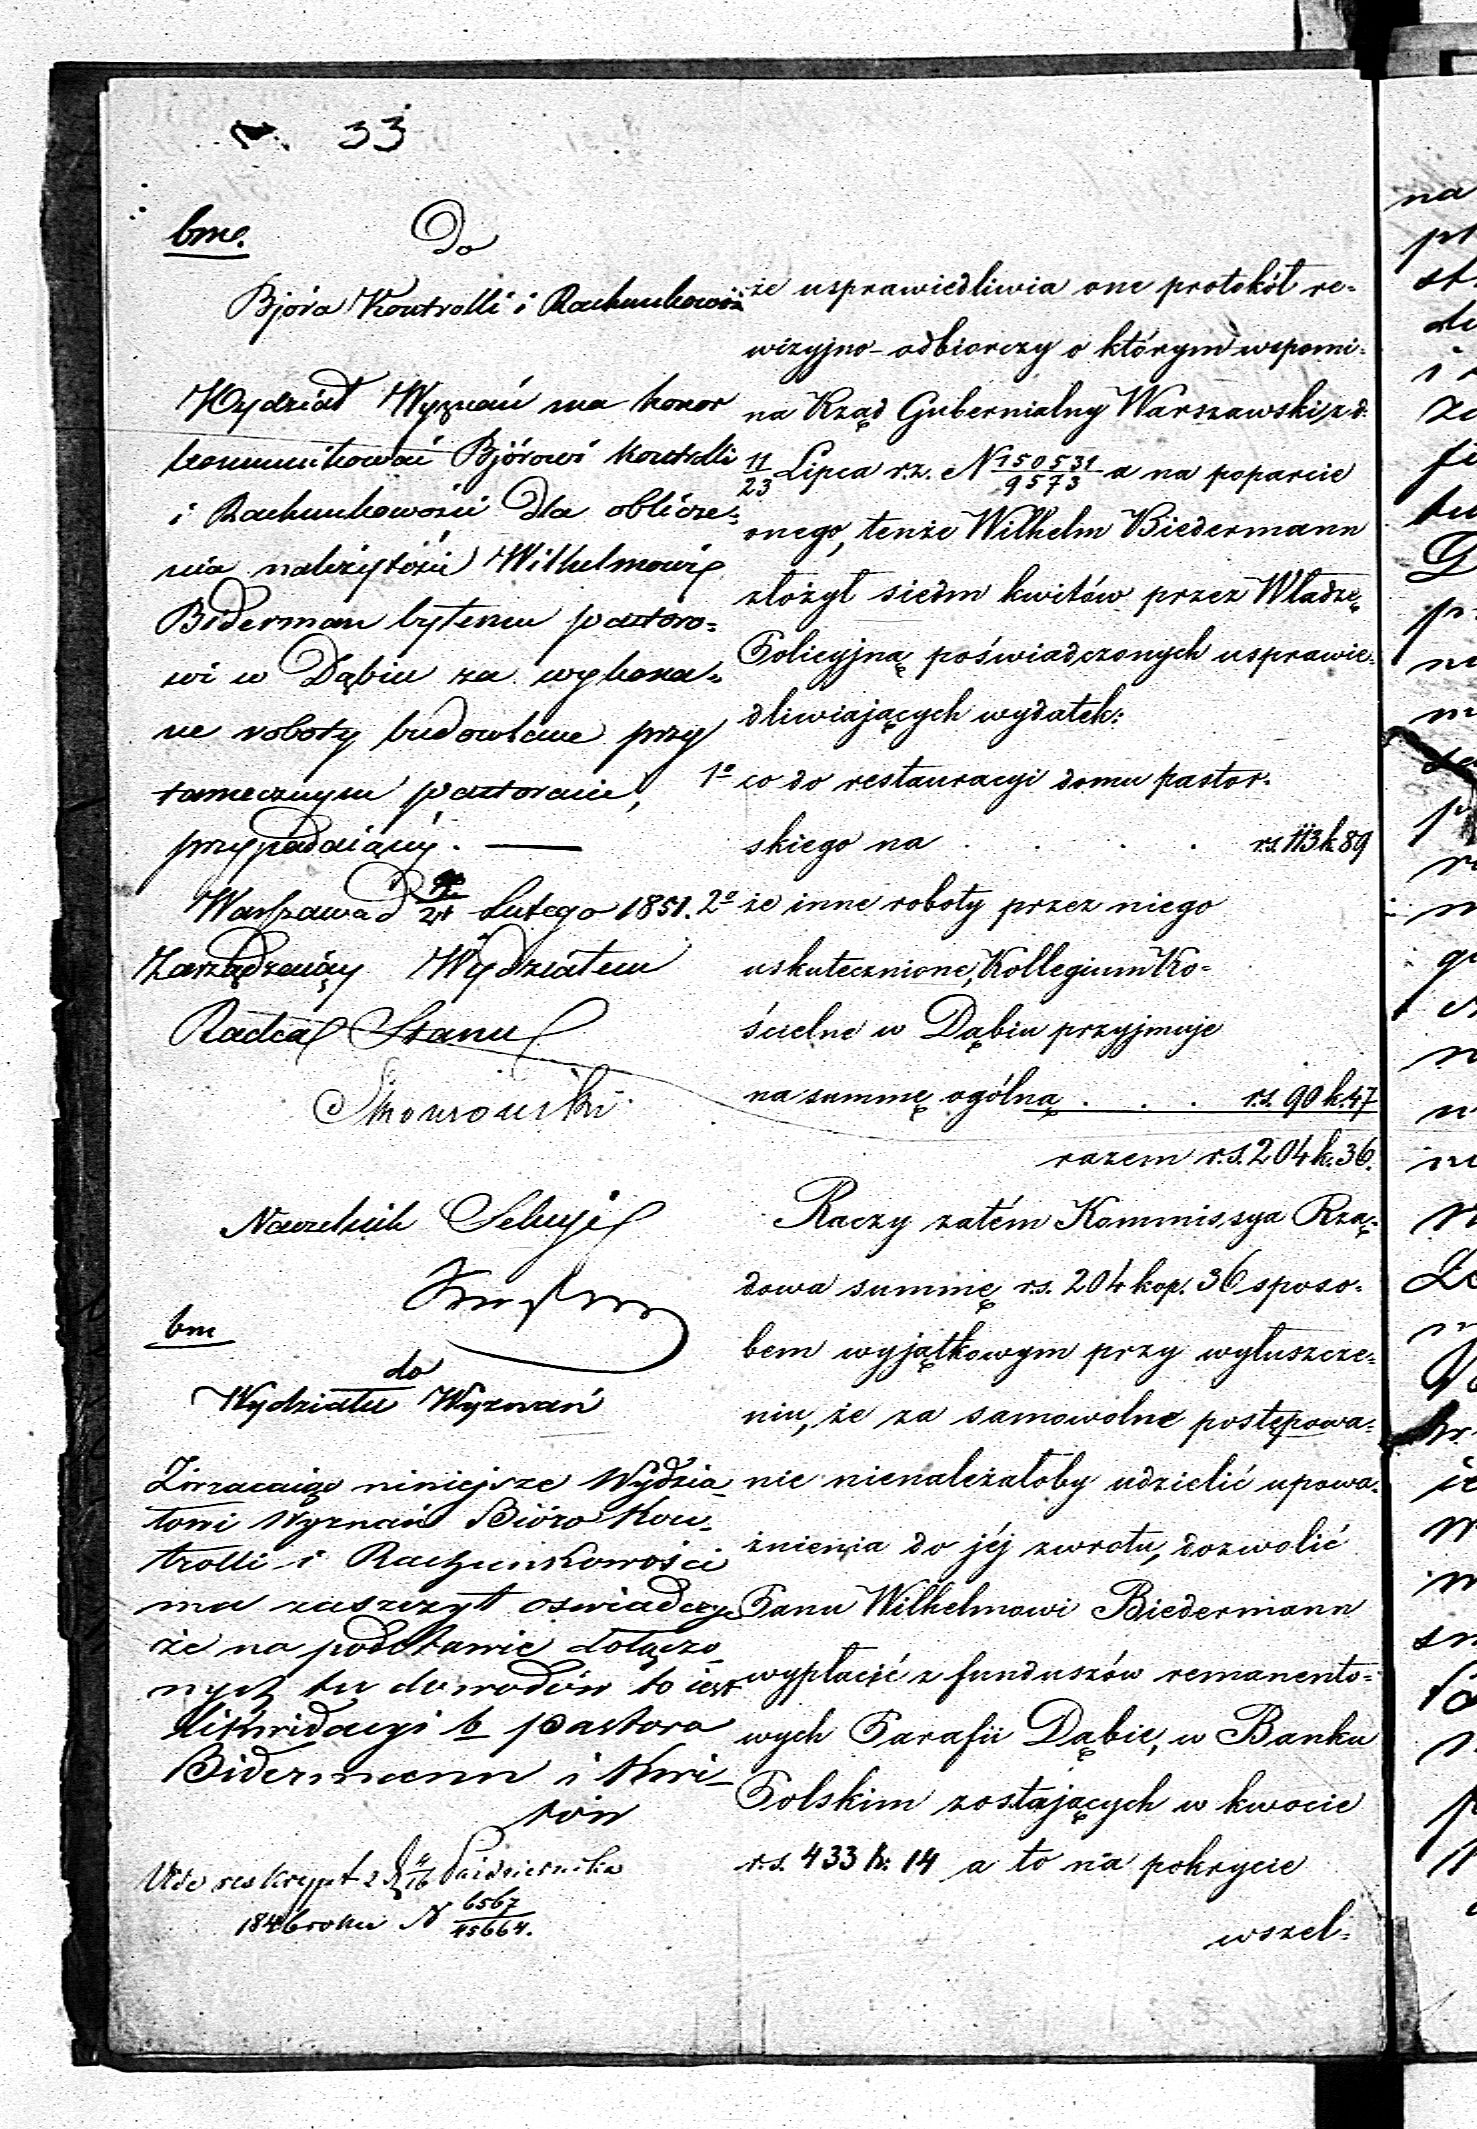 N. 33
bm.
Do
Bjóra Kontrolli i Rachunkowości
Wydział Wyznań ma honor
kommunikować Bjórowi Kontrolli
i Rachunkowości dla oblicze=
nia należytości Wilhelmowi
Biderman bytemu pastoro=
wi w Dąbiu za wykona=
ne roboty budowlane przy
tamecznym pastoracie,
przypadaiącéj. —
Warszawa d Lutego 1851.
Zarządzaiący Wydziałem
Radca Stanu
Naczelnik Sekcyi
bm
do
Wydziału Wyznań
Zwracaiąc niniejsze Wydzia=
łowi Wyznań Bióro Kon=
trolli i Rachunkowości
ma zaszczyt oświadczyć
że na podstawie dołączo=
nych tu dowodów to iest
likwidacyi b pastora
Bidermann i Kwi=
tów
Vide reskrypt z d 4/16 Października
1846 roku N 6567/45664.
że usprawiedliwia one protokół re=
wizyjno-odbiorczy o którym wspomi=
na Rząd Gubernialny Warszawski z d.
11/23 Lipca r.z. N 150531/9573 a na poparcie
onego, tenże Wilhelm Biedermann
złożył siedm kwitów przez Władzę
Policyjną poświadczonych usprawie=
dliwiających wydatek:
1º co do restauracyi domu pastor=
skiego na . . . . rs. 113 k 89
2º że inne roboty przez niego
uskutecznione, Kollegium Ko=
ścielne w Dąbiu przyjmuje
na summę ogólną . . . r.s. 90 k. 47
razem r.s. 204 k. 36.
Raczy zatém Kommissya Rzą=
dowa summę r.s. 204 kop. 36 sposo=
bem wyjątkowym przy wyłuszcze=
niu, że za samowolne postępowa=
nie nienależałoby udzielić upowa=
żnienia do jéj zwrotu, dozwolić
Panu Wilhelmowi Biedermann
wypłacić z funduszów remanento=
wych Parafii Dąbie, w Banku
Polskim zostających w kwocie
r.s. 433 k. 14 a to na pokrycie
wszel=